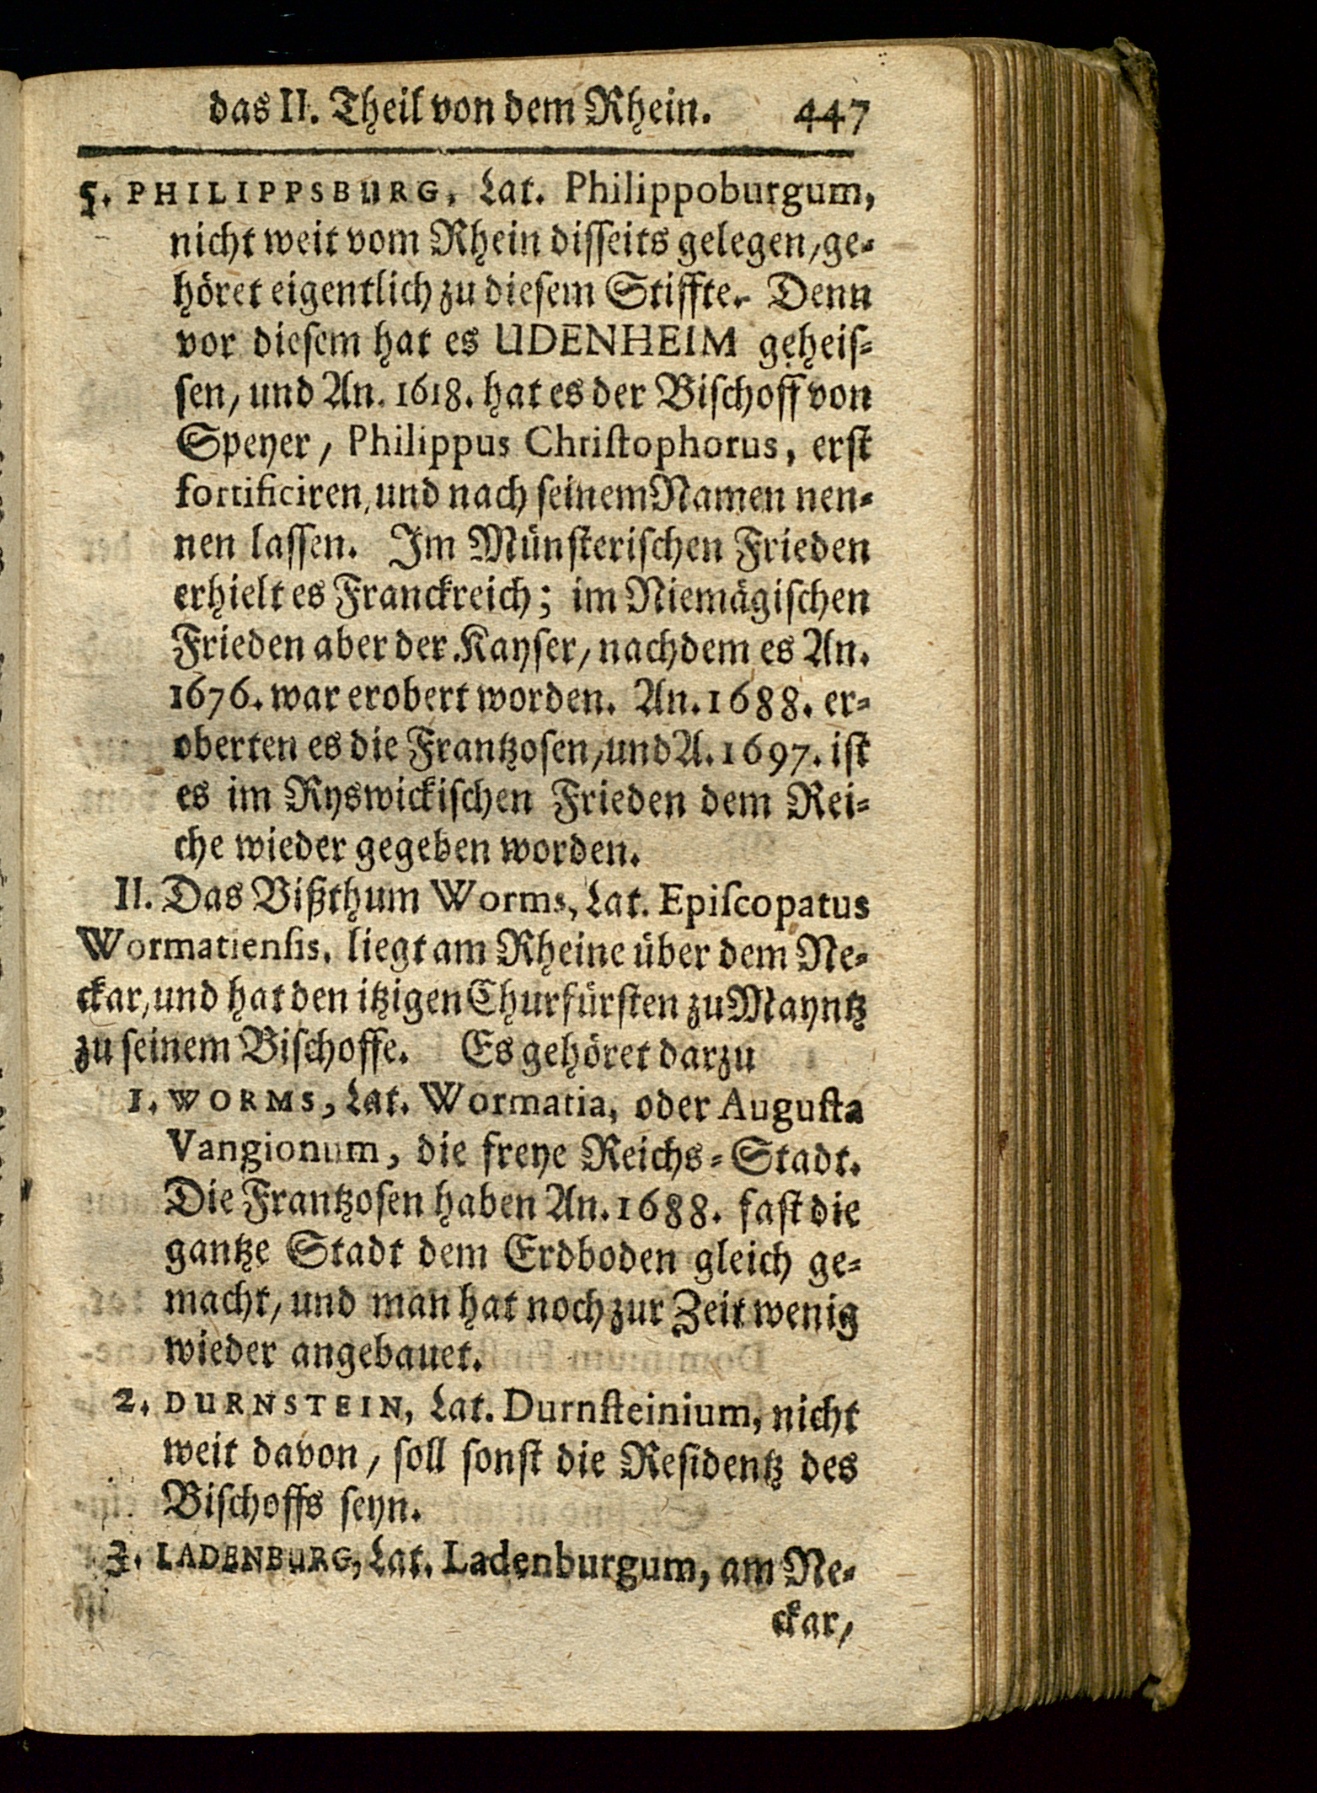 das II. Theil von dem Rhein. 447
5. PHILIPPSBURG, Lat. Philippoburgum,
nicht weit vom Rhein disseits gelegen/ge-
höret eigentlich zu diesem Stiffte. Denn
vor diesem hat es UDENHEIM geheis-
sen/ und An. 1618. hat es der Bischoff von
Speyer/ Philippus Christophorus, erst
fortificiren, und nach seinem Namen nen-
nen lassen. Im Münsterischen Frieden
erhielt es Franckreich; im Niemägischen
Frieden aber der Kayser/ nachdem es An.
1676. war erobert worden. An. 1688. er-
oberten es die Frantzosen/und A. 1697. ist
es im Ryswickischen Frieden dem Rei-
che wieder gegeben worden.
II. Das Bißthum Worms, Lat. Episcopatus
Wormatiensis. liegt am Rheine über dem Ne-
ckar/und hat den itzigen Churfürsten zu Mayntz
zu seinem Bischoffe. Es gehöret darzu
1. WORMS, Lat. Wormatia, oder Augusta
Vangionum, die freye Reichs-Stadt.
Die Frantzosen haben An. 1688. fast die
gantze Stadt dem Erdboden gleich ge-
macht/ und man hat noch zur Zeit wenig
wieder angebauet.
2. DURNSTEIN, Lat. Durnsteinium, nicht
weit davon/ soll sonst die Residentz des
Bischoffs seyn.
3. LADENBURG, Lat. Ladenburgum, am Ne-
ckar/